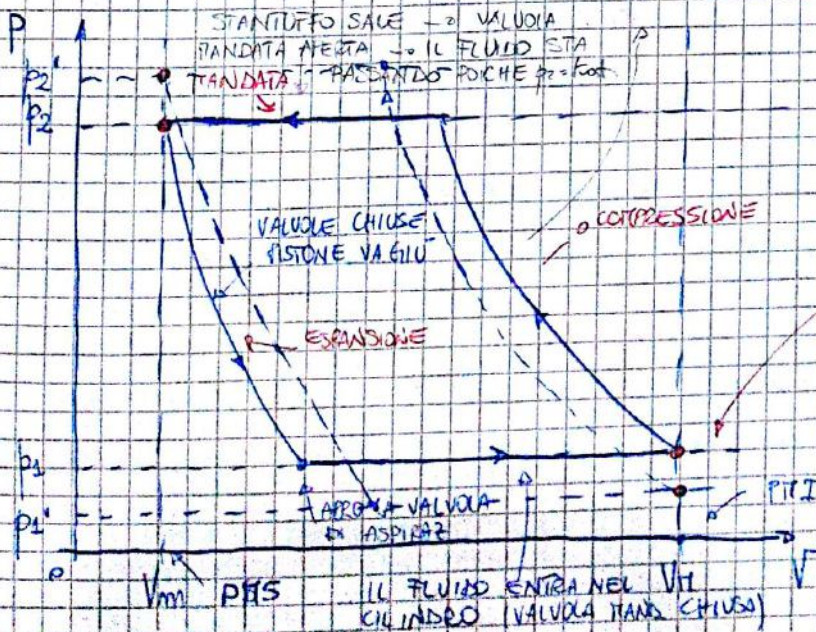 P
STANTUFFO SALE → VALVOLA
MANDATA APERTA → IL FLUIDO STA
p2'
MANDATA PASSANDO POICHÉ p2=cost
p2
VALVOLE CHIUSE
PISTONE VA GIÙ
COMPRESSIONE
ESPANSIONE
p1
p1'
APRO LA VALVOLA
DI ASPIRAZ
PMI
Vm PMS
IL FLUIDO ENTRA NEL VM V
CILINDRO (VALVOLA MAND. CHIUSA)